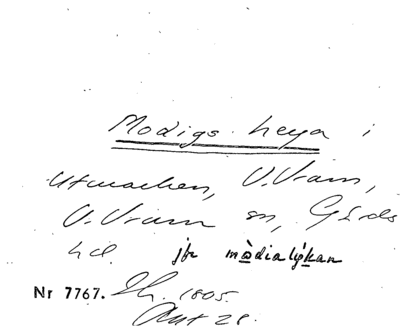 Modigs heya i
utmarken, V. Vram,
V. Vram sn, Gärds
hd. jfr mòdialýkan
Nr 7767. Sk. 1805.
Akt 28.